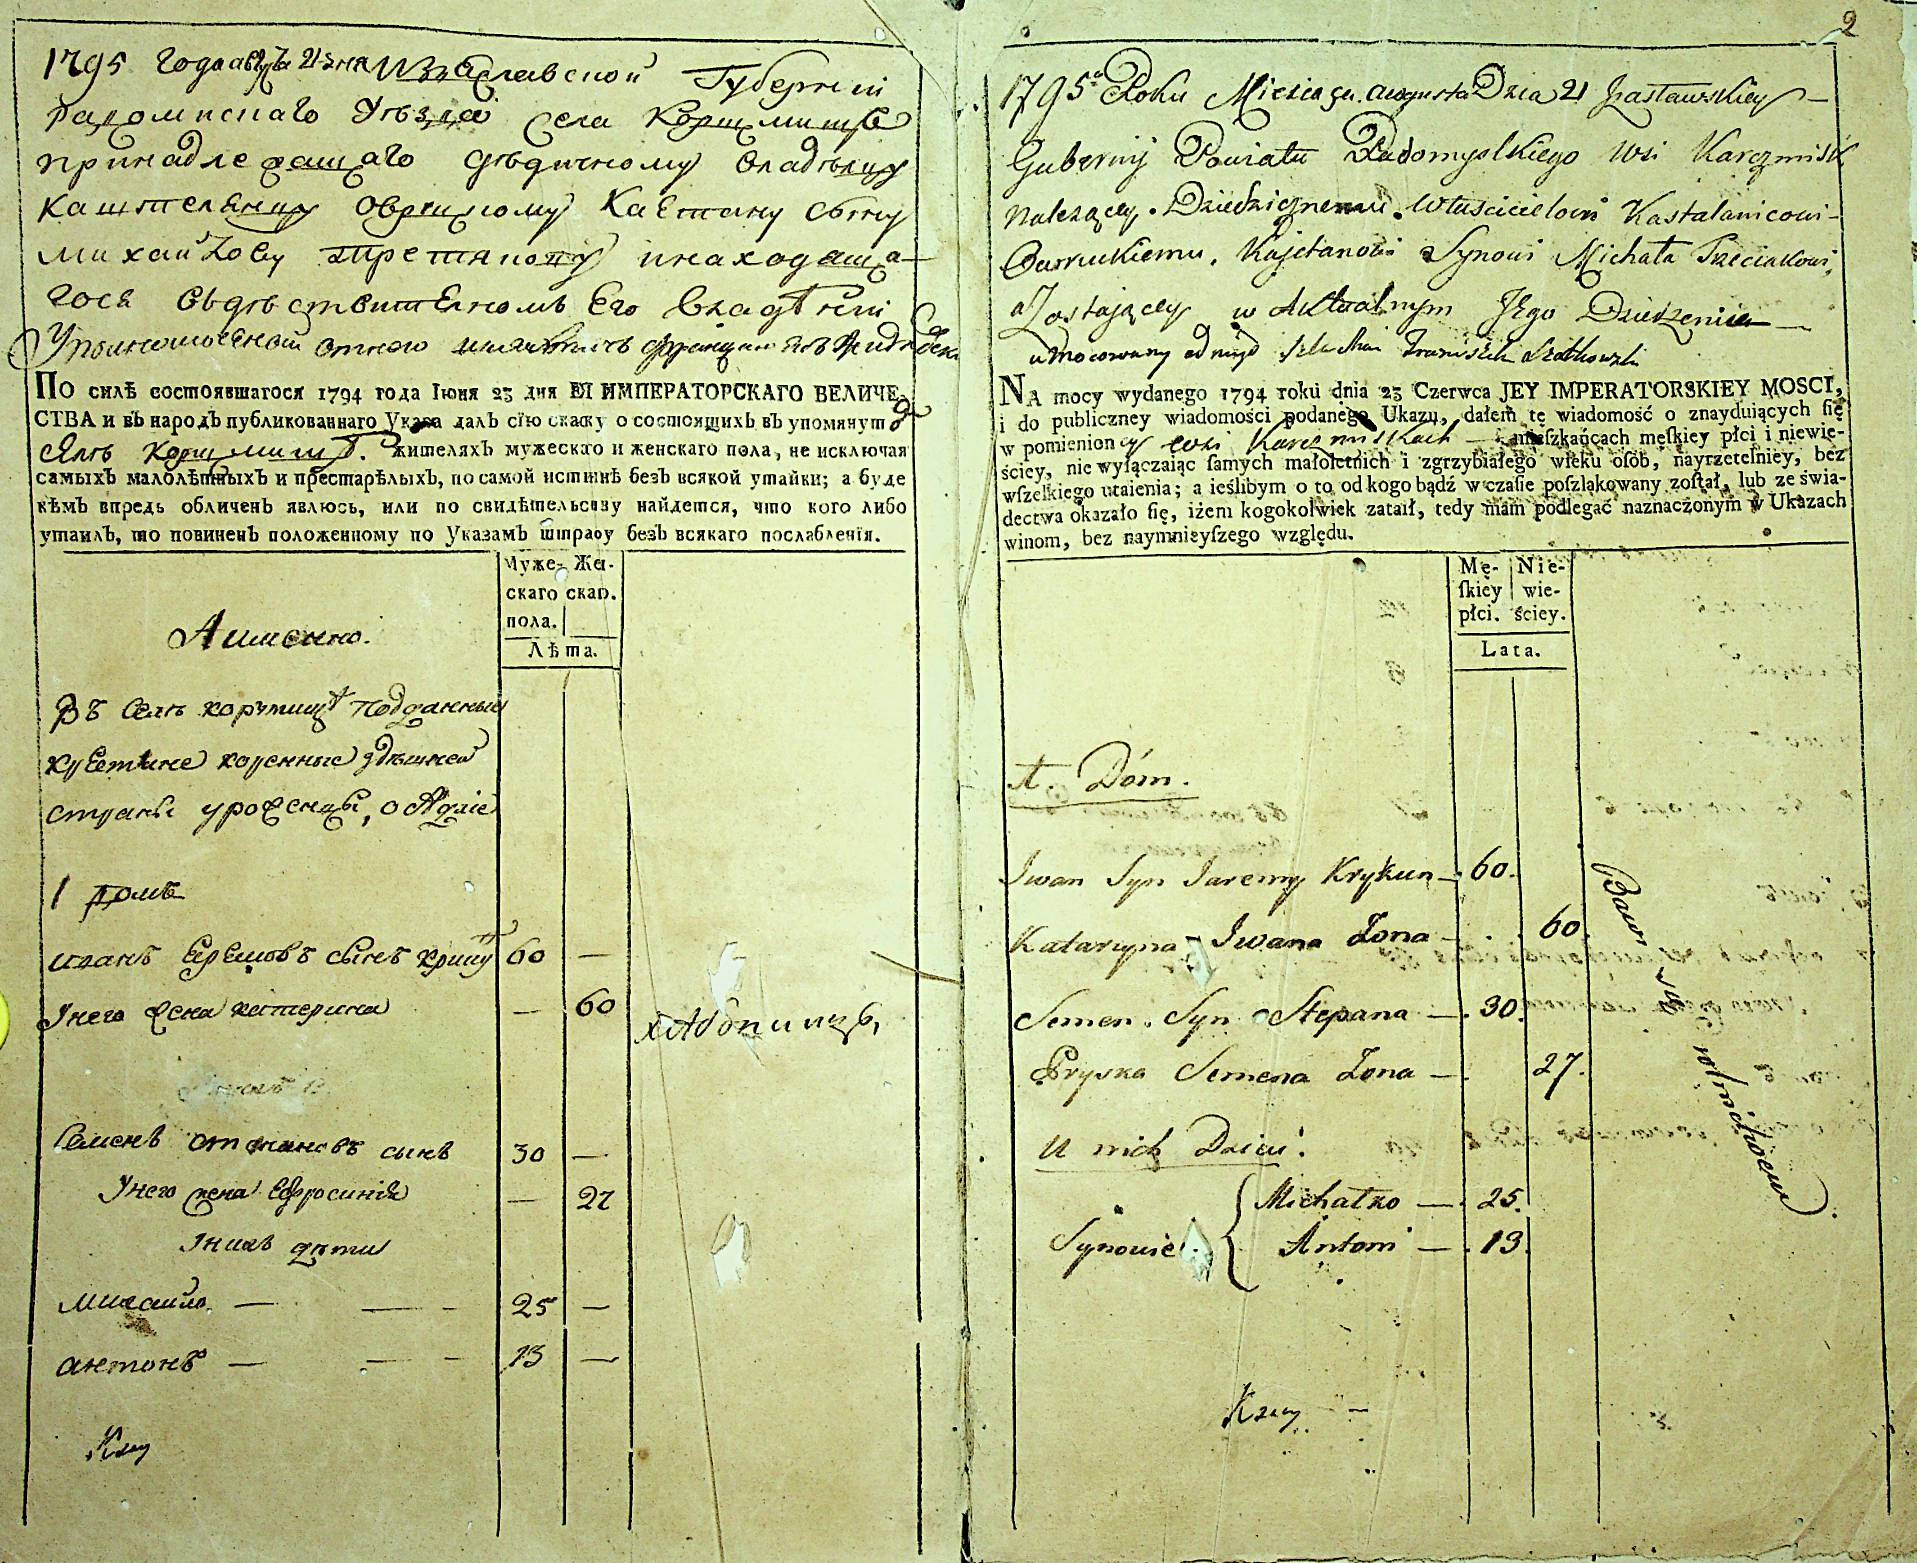 1795 года авгу 21 дня Изяславской Губерніи
радомискаго Уѣзда Села Корчмищъ
принадлежащаго дѣдичному владѣлцу
каштеляницу овруцкому Каетану сыну
михайлову третякову инаходяща-
гося вьдѣствителномъ Его владѣніи
Уполномоченой отнего шляхтичь францишекъ
ПО силѣ состоявшагося 1794 года Іюня 23 дня ЕЯ ИМПЕРАТОРСКАГО ВЕЛИЧЕ-
СТВА и въ народъ публикованнаго Указа далъ сїю скаску о состоящихъ въ упомянуто
селѣ Корчмищѣ. жителяхъ мужескаго и женскаго пола, не исключая
самыхъ малолѣтныхъ и престарѣлыхъ, по самой истиннѣ безъ всякой утайки; а буде
кѣмъ впредь обличенъ явлюсь, или по свидѣтельству найдется, что кого либо
утаилъ, то повиненъ положенному по Указамъ штрафу безъ всякаго послабленїя.
Муже- Жен-
скаго скаго.
пола.
Лѣта.
Аименно.
Въ Селѣ корчмищѣ подданные
крестяне коренные здѣшнеи
страны уроженцы, о
1 домъ
иванъ Еремовъ сынъ крикун 60 —
Унего жена катерина — 60
хлѣбопашцы,
Семенъ степановъ сынъ 30 —
Унего жена Ефросинія — 27
Унихъ дѣти
михаило — — - 25 —
антонъ — — - 13 —
2
1795 Roku Miesiąca augusta Dnia 21 Zasławskiey —
Gubernij Powiatu Radomyslskiego wsi Karczmisk
Należącey. Dziedzicznemu. Właścicielowi Kasztalanicowi-
Owruckiemu. Kajetanowi Synowi Michała Trzeciakowi,
a Zostaiącey w Aktualnym Jego Dziedzeniu —
umocowany od niego Szlachcic Franciszek
NA mocy wydanego 1794 roku dnia 23 Czerwca JEY IMPERATORSKIEY MOSCI,
i do publiczney wiadomości podanego Ukazu, dałem tę wiadomość o znayduiących ſię
w pomienioney wsi Karczmiskach — mieſzkańcach męſkiey płci i niewie-
ściey, nie wyłączaiąc ſamych małoletnich i zgrzybiałego wieku oſób, nayrzetelniey, bez
wſzelkiego utaienia; a ieślibym o to od kogo bądź w czaſie poſzlakowany zoſtał, lub ze świa-
dectwa okazało ſię, iżem kogokolwiek zataił, tedy mam podlegać naznaczonym w Ukazach
winom, bez naymnieyſzego względu.
Mę- Nie-
ſkiey wie-
płci. ściey.
Lata.
1. Dóm.
Jwan Syn Jaremy Krykun — 60.
Katarzyna Jwana Zona — 60.
Semen Syn Stepana — 30.
Pryska Semena Zona — 27.
U nich Dzieci:
Synowie { Michałko — 25.
Antoni — 13.
Bawi się rolnictwem.